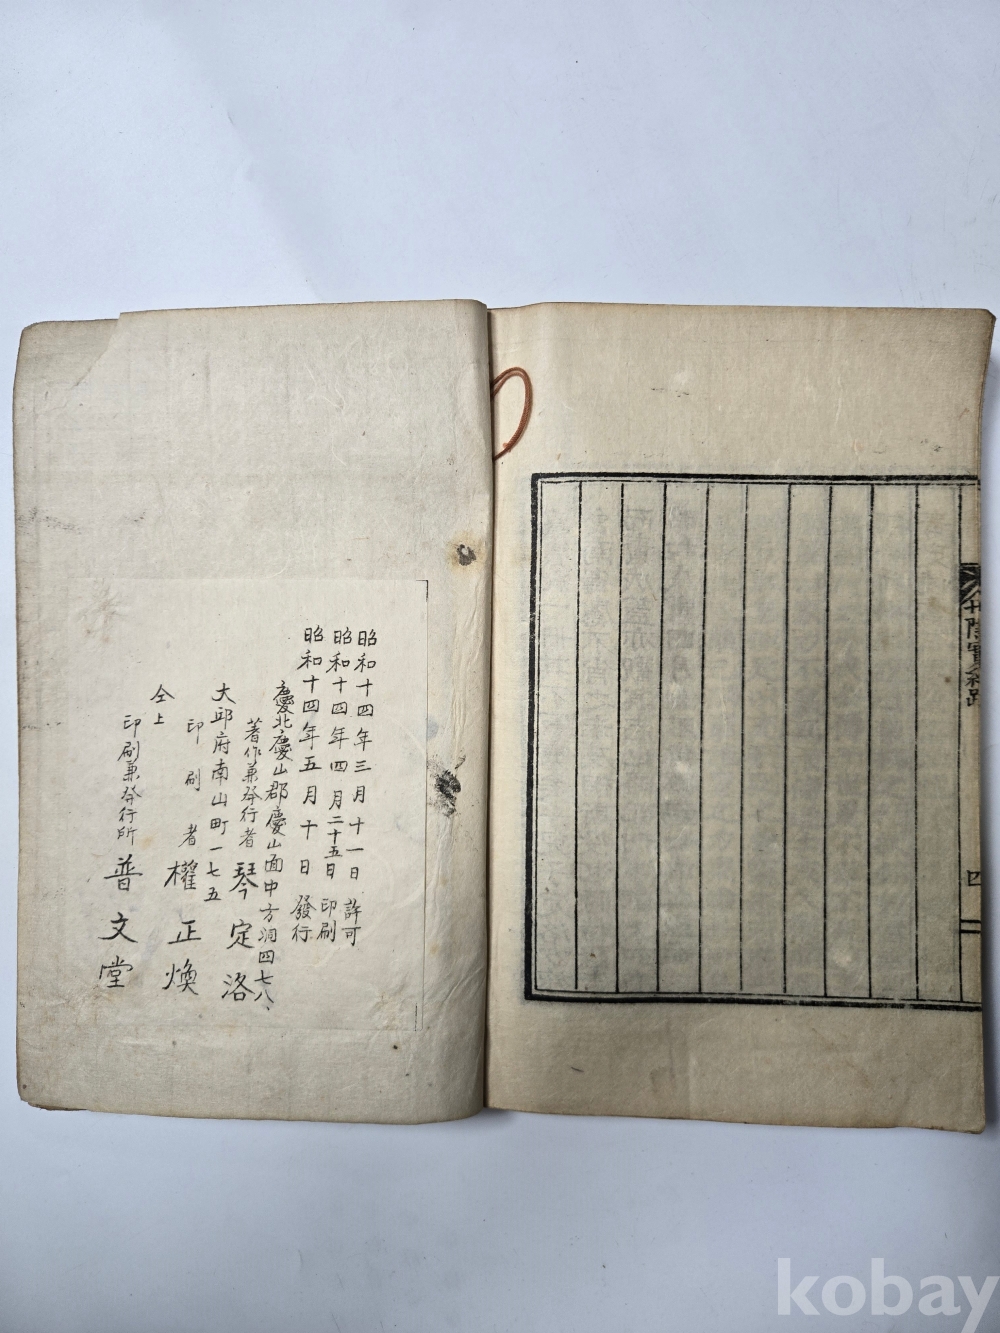 四
昭和十四年三月十一日 許可
昭和十四年四月二十五日 印刷
昭和十四年五月十日 發行
慶北慶山郡慶山面中方洞四七八
著作兼發行者 琴定洛
大邱府南山町一七五
印刷者 權正煥
仝上
印刷兼發行所 普文堂
kobay